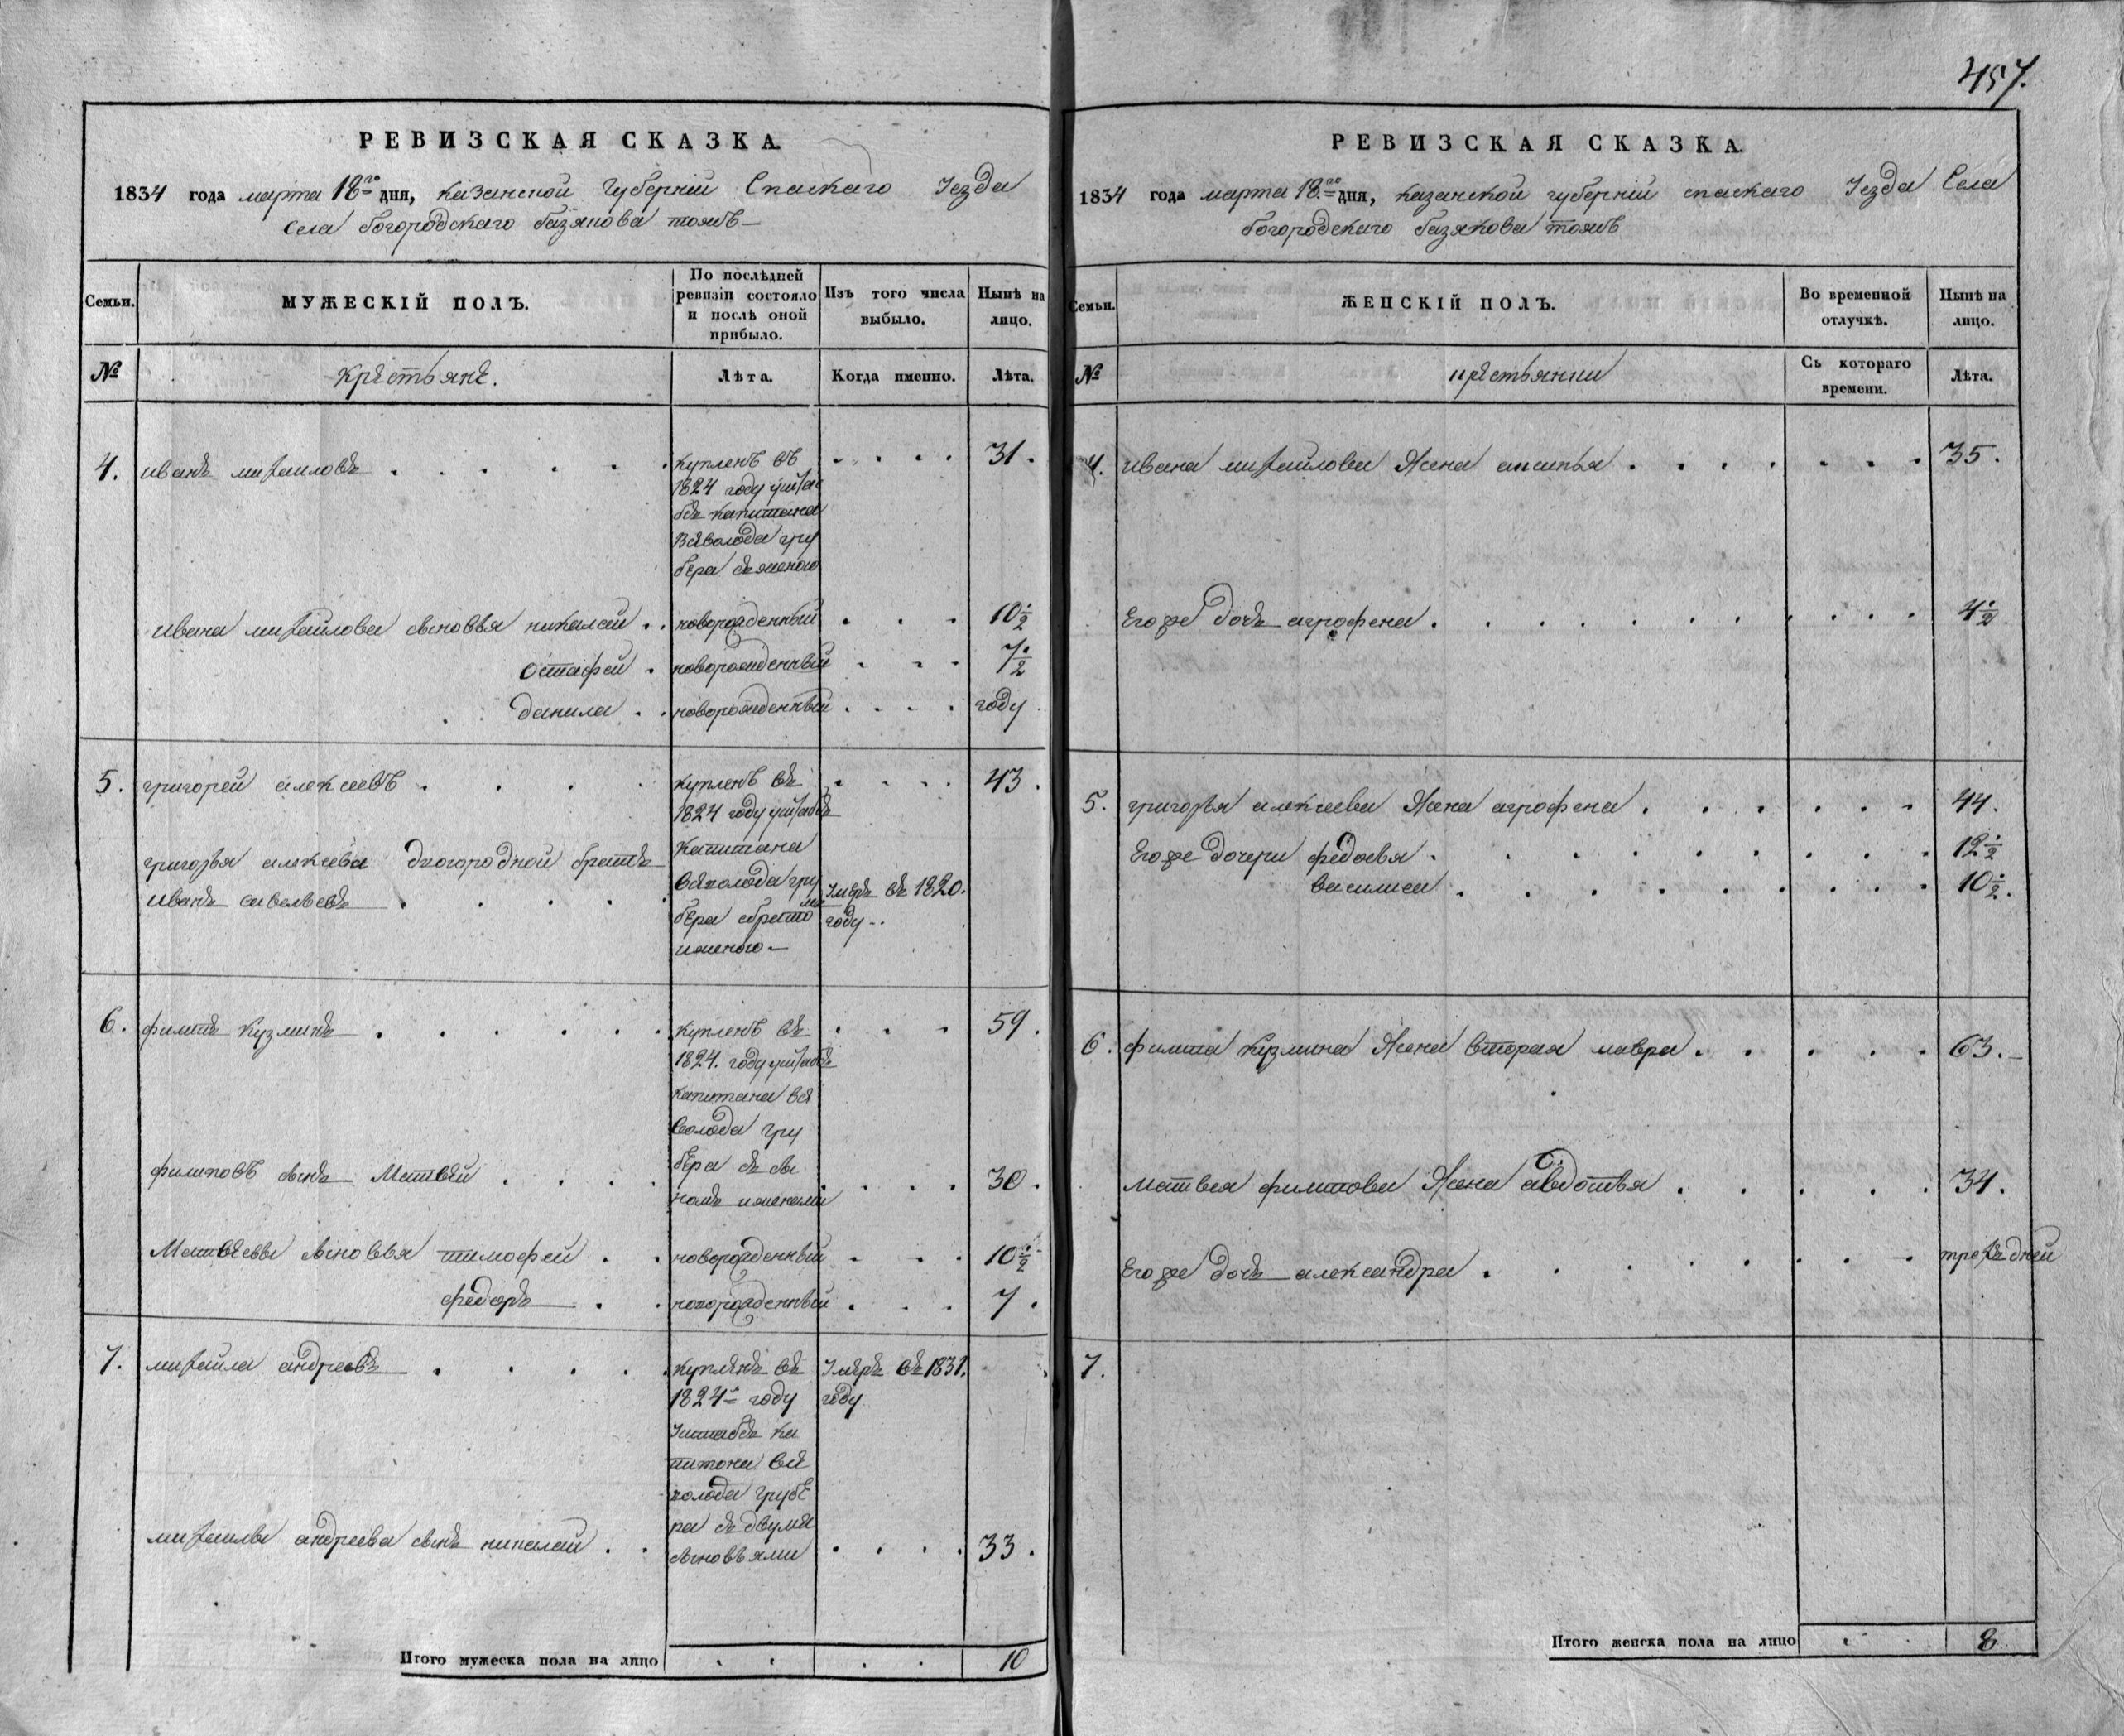 457.
РЕВИЗСКАЯ СКАЗКА.
1834 года марта 18го дня, казанской губерніи Спаскаго Уезда
Села богородскаго базякова тожъ
Семьи. МУЖЕСКІЙ ПОЛЪ. По послѣдней ревизіи состояло и послѣ оной прибыло. Изъ того числа выбыло. Нынѣ на лицо.
№ крѣстьянѣ. Лѣта. Когда именно. Лѣта.
4. иванъ михаиловъ купленъ въ 31.
1824 году уштаб
бъ капитана
Всѣволода гру
бера съ женою
ивана михайлова сыновья николай новорожденный 10 1/2
Остафей новорожденный 7 1/2
данила новорожденный году
5. григорей алексеевъ купленъ въ 43.
1824 году уштабъ
капитана
григорья алексева двогородной братъ
всѣволода гру
иванъ савельевъ Умеръ въ 1820.
бера сбратоми году
иженою
6. филипъ кузминъ купленъ въ 59.
1824. году уштабъ
капитана всѣ
волода гру
филиповъ сынъ Матвей бера съ сы 30.
номъ иженами
Матвѣевы сыновья тимофей новорожденный 10 1/2
федоръ новорожденный 7.
7. михаила андреевъ купленъ въ Умѣръ въ 1831.
1824м году году
Уштабъ ка
питона всѣ
волода грубе
ра съ двумя
михаилы андреева сынъ николай сыновьями 33.
Итого мужеска пола на лицо 10
РЕВИЗСКАЯ СКАЗКА.
1834 года марта 18го дня, казанской губерніи спаскаго Уезда Села
богородскаго базякова тожъ
Семьи. ЖЕНСКІЙ ПОЛЪ. Во временной отлучкѣ. Нынѣ на лицо.
№ крѣстьянки Съ котораго времени. Лѣта.
4. ивана михайлова Жена аксинья 35.
Егоже дочь агрофена 4 1/2
5. григорья алексеева Жена агрофена 44.
Егоже дочери федосья 12 1/2
василиса 10 1/2.
6. филипа кузмина Жена вторая мавра 63.
матвея филипова Жена авдотья 34.
Егоже дочь александра трехъ дней
7.
Итого женска пола на лицо 8